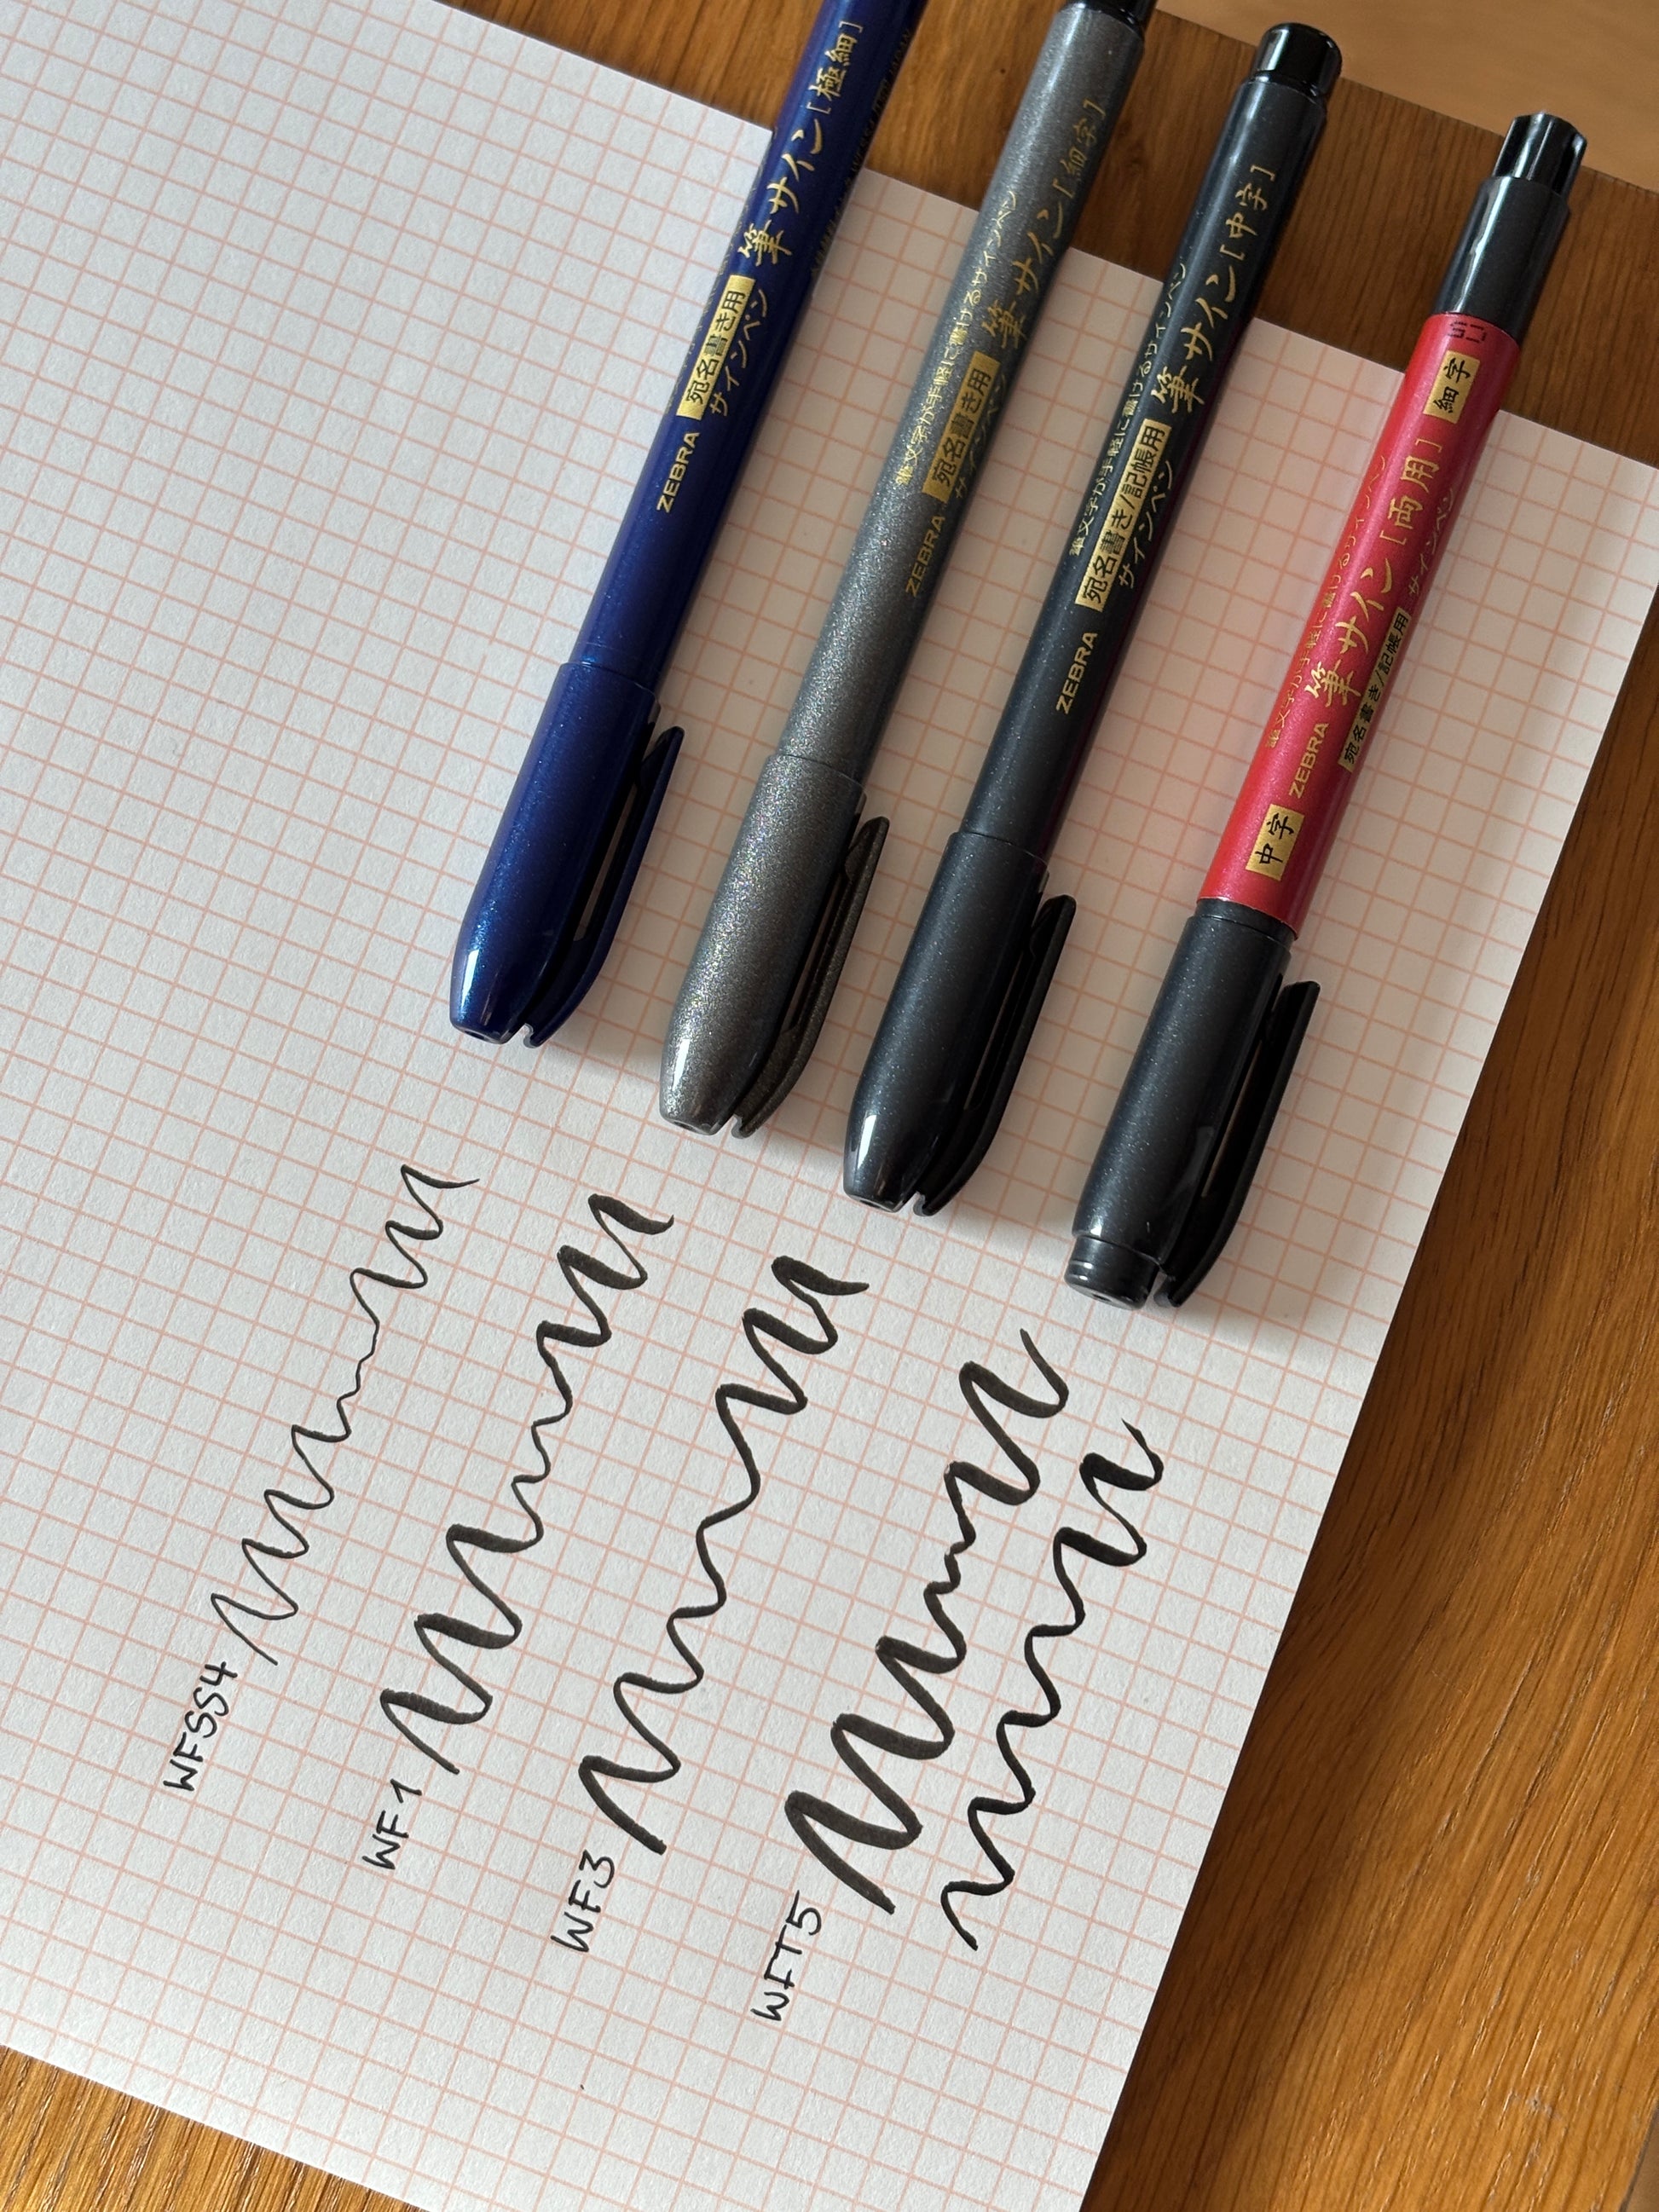 ZEBRA
宛名書き用
サインペン
筆サイン[極細]
筆文字が手軽に書けるサインペン
ZEBRA
宛名書き用
サインペン
筆サイン[細字]
筆文字が手軽に書けるサインペン
ZEBRA
宛名書き/記帳用
サインペン
筆サイン[中字]
筆文字が手軽に書けるサインペン
中字
ZEBRA
筆サイン[両用]
宛名書き/記帳用 サインペン
細字
WFSS4
WF1
WF3
WFT5